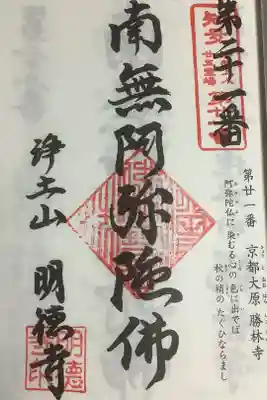 第二十一番
知多
廿五霊場
第廿一番 京都大原 勝林寺
阿弥陀仏に 染むる心の 色に出でば
秋の梢の たぐひならまし
南無阿弥陀佛
浄土山 明徳寺